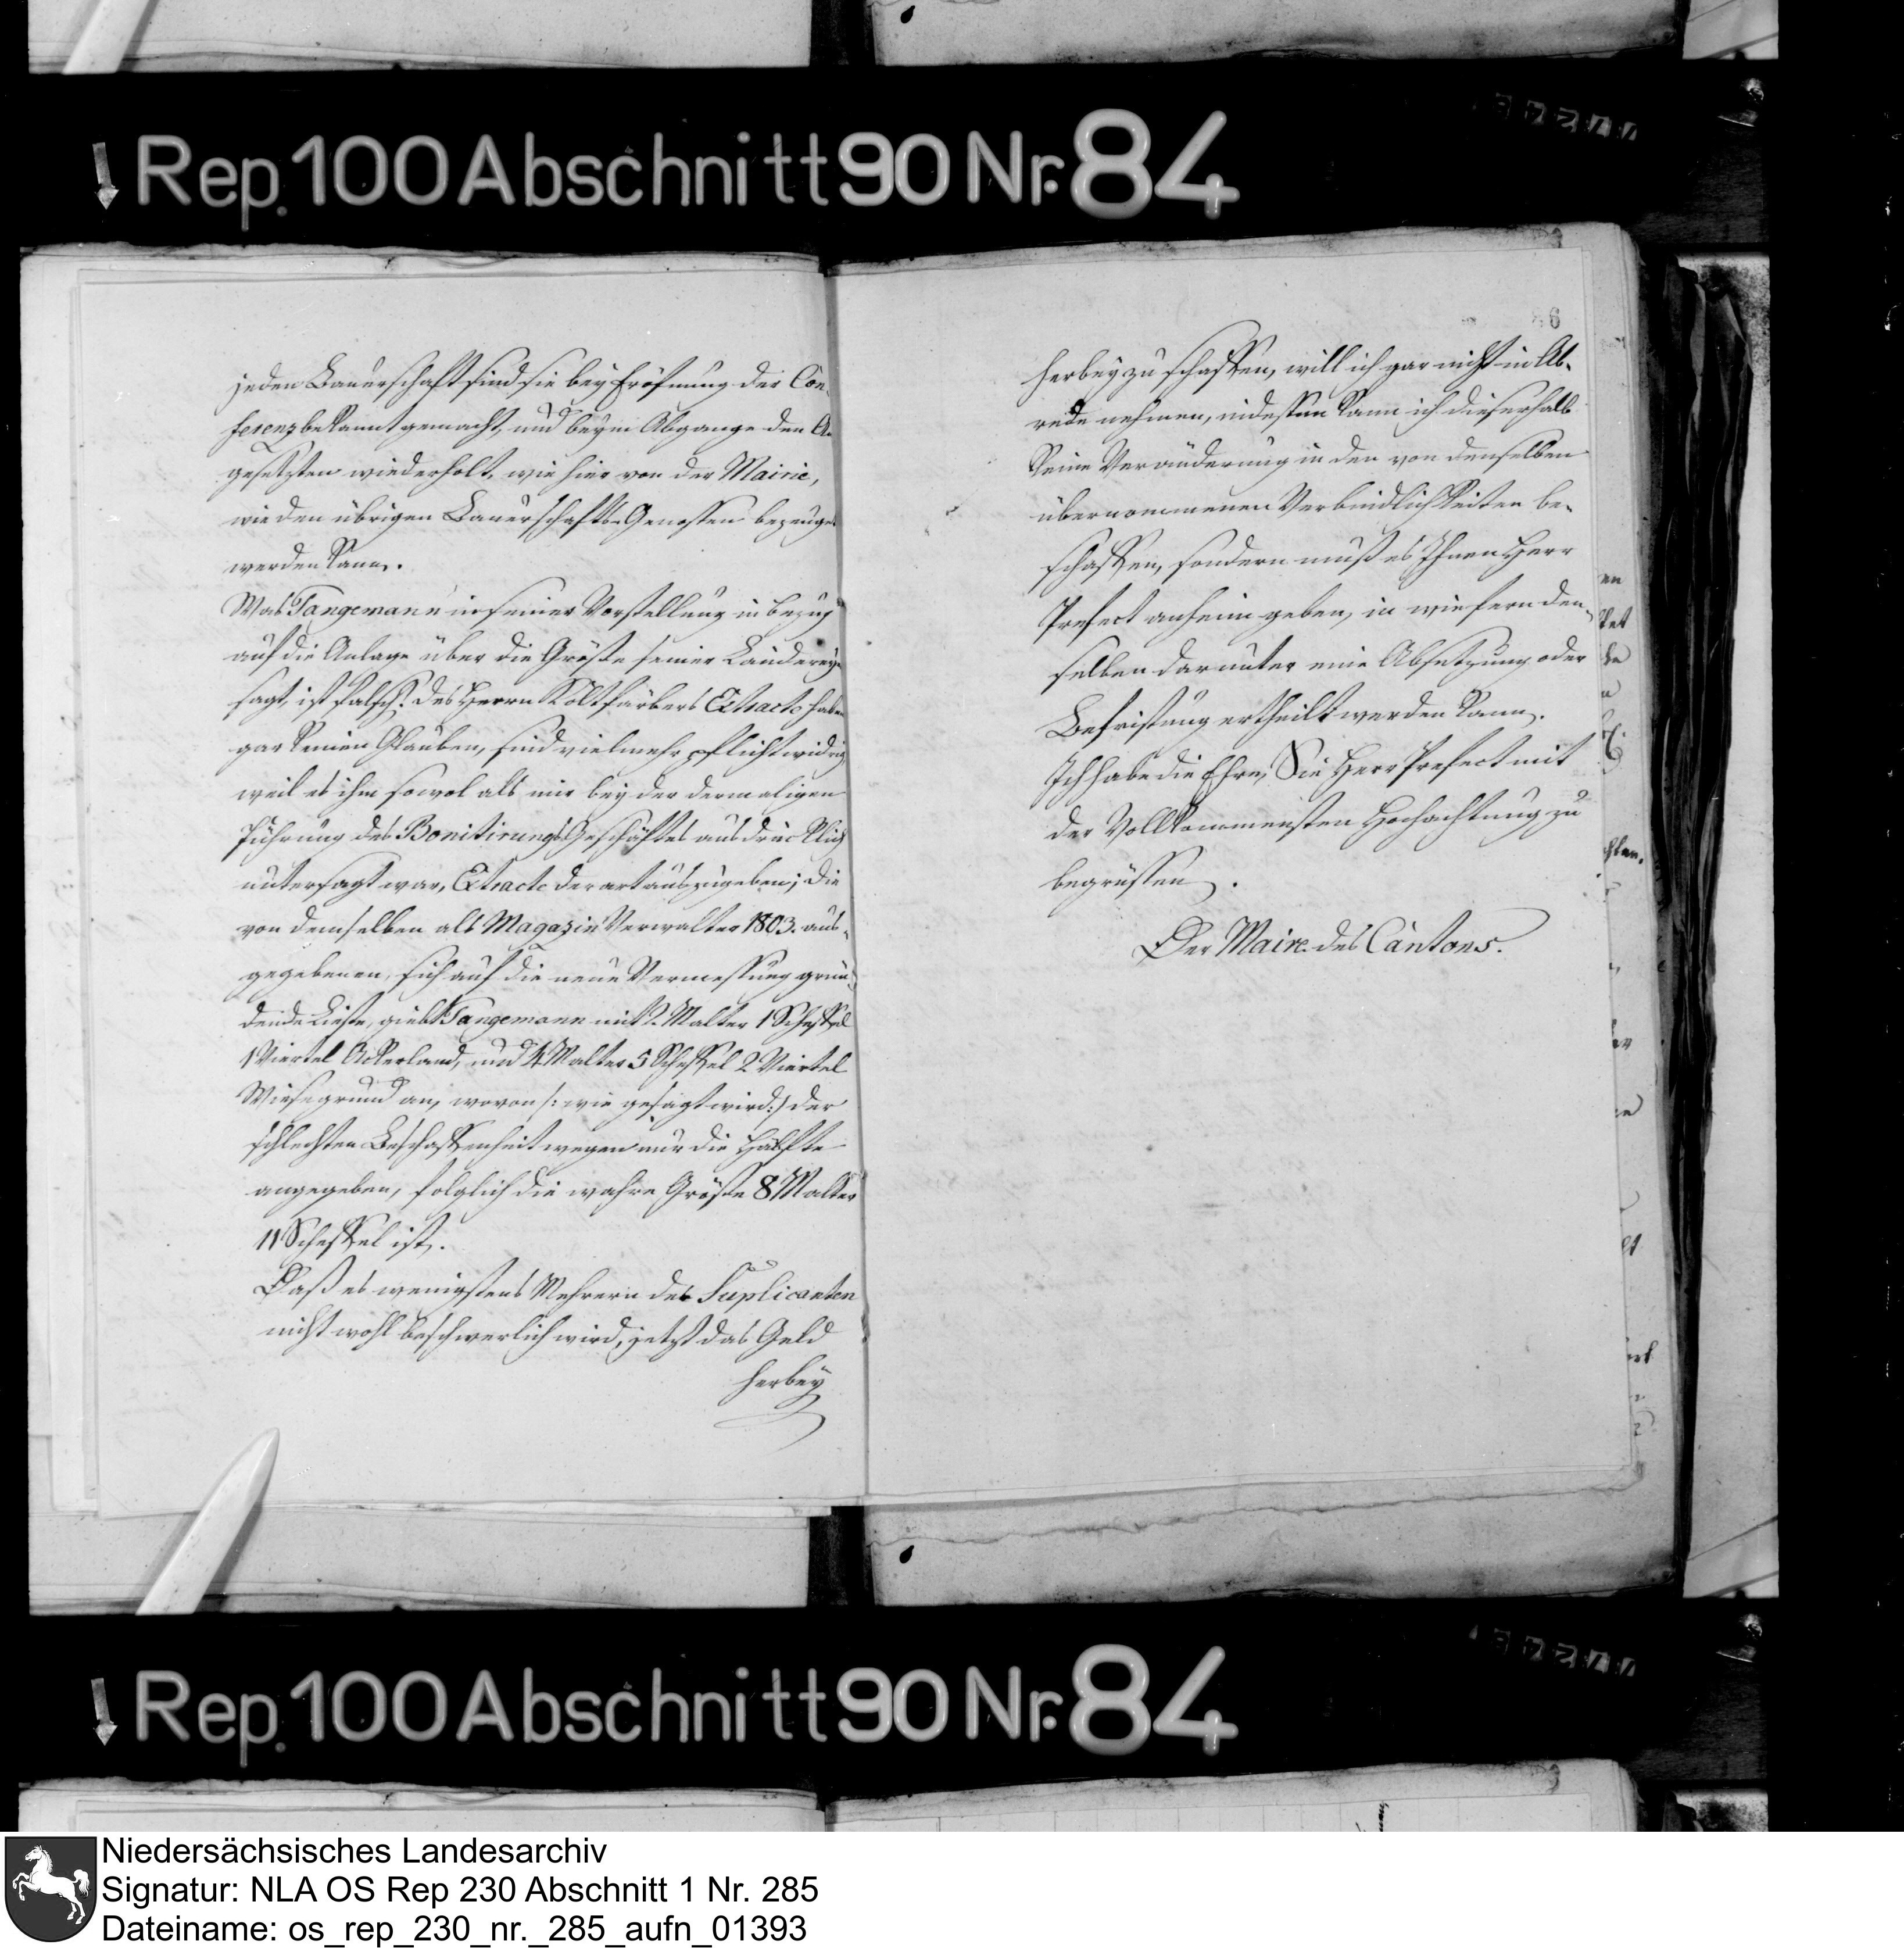 Rep. 100 Abschnitt 90 Nr. 84
jeden Bauerschaft sind sie bey Eröfnung der Con-
ferenz bekannt gemacht, und beym Abgange den
gesetzten wiederholt, wie hier von der Mairie,
wie den übrigen Bauerschafts-Genossen bezeuget
werden kann.
Was Tangemann in seiner Vorstellung in bezug
auf die Anlage über die Größe seiner Ländereyen
sagt, ist falsch. Des Herrn Extracte haben
gar keinen Glauben, sind vielmehr pflichtwidrig
weil es ihm sowol als mir bey der dermaligen
Führung des Bonitirungs Geschäftes ausdrücklich
untersagt war, Extracte der art auszugeben; die
von demselben als Magazin Verwalter 1803. aus-
gegebenen, sich auf die neue Vermessung grün-
dende Liste, giebt Tangemann mit 2. Malter 1 Scheffel
1 Viertel Ackerland, und 4 Malter 5 Scheffel 2 Viertel
Wiesegrund an, wovon /: wie gesagt wird :/ der
schlechten Beschaffenheit wegen nur die Hälfte
angegeben, folglich die wahre Größe 8 Malter
11 Scheffel ist.
Daß es wenigstens Mehrern des Suplicanten
nicht wohl beschwerlich wird, jetzt das Geld
herbey
6
herbey zu schaffen, will ich gar nicht in Ab-
rede nehmen, indessen kann ich dieserhalb
keine Veränderung in den von denselben
übernommenen Verbindlichkeiten be-
schaffen, sondern muß es Ihnen Herr
Prefect anheim geben, in wie fern den-
selben darunter eine Absetzung oder
Befristung ertheilt werden kann.
Ich habe die Ehre, Sie Herr Prefect mit
der Vollkommensten Hochachtung zu
begrüssen.
Der Maire des Cantons.
Rep. 100 Abschnitt 90 Nr. 84
Niedersächsisches Landesarchiv
Signatur: NLA OS Rep 230 Abschnitt 1 Nr. 285
Dateiname: os_rep_230_nr._285_aufn_01393